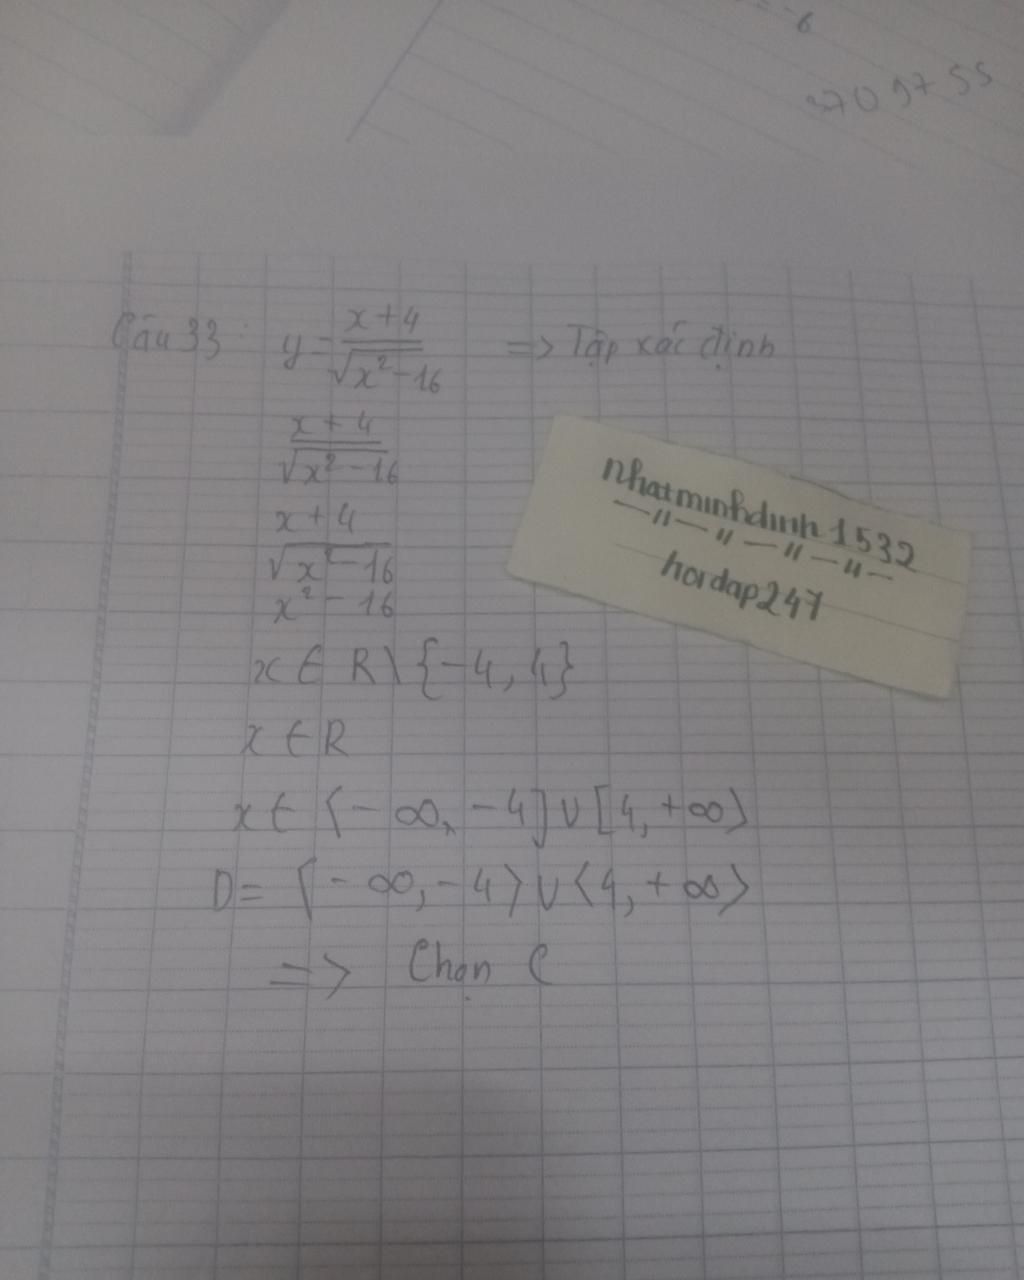 -6
709755
Câu 33: y = \frac{x+4}{\sqrt{x^2-16}} => Tập xác định
\frac{x+4}{\sqrt{x^2-16}}
x+4
\sqrt{x^2-16}
x^2-16
x ∈ R \ {-4, 4}
x ∈ R
x ∈ (-∞, -4] ∪ [4, +∞)
D = (-∞, -4) ∪ (4, +∞)
=> Chọn C
nhatminhdinh1532
—〃—〃—〃—〃—
hoidap247